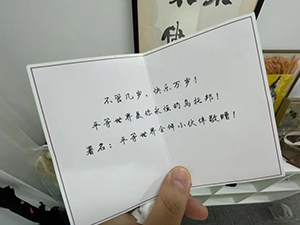 不管几岁，快乐万岁！
平等世界是你永远的乌托邦！
署名：平等世界全体小伙伴敬赠！